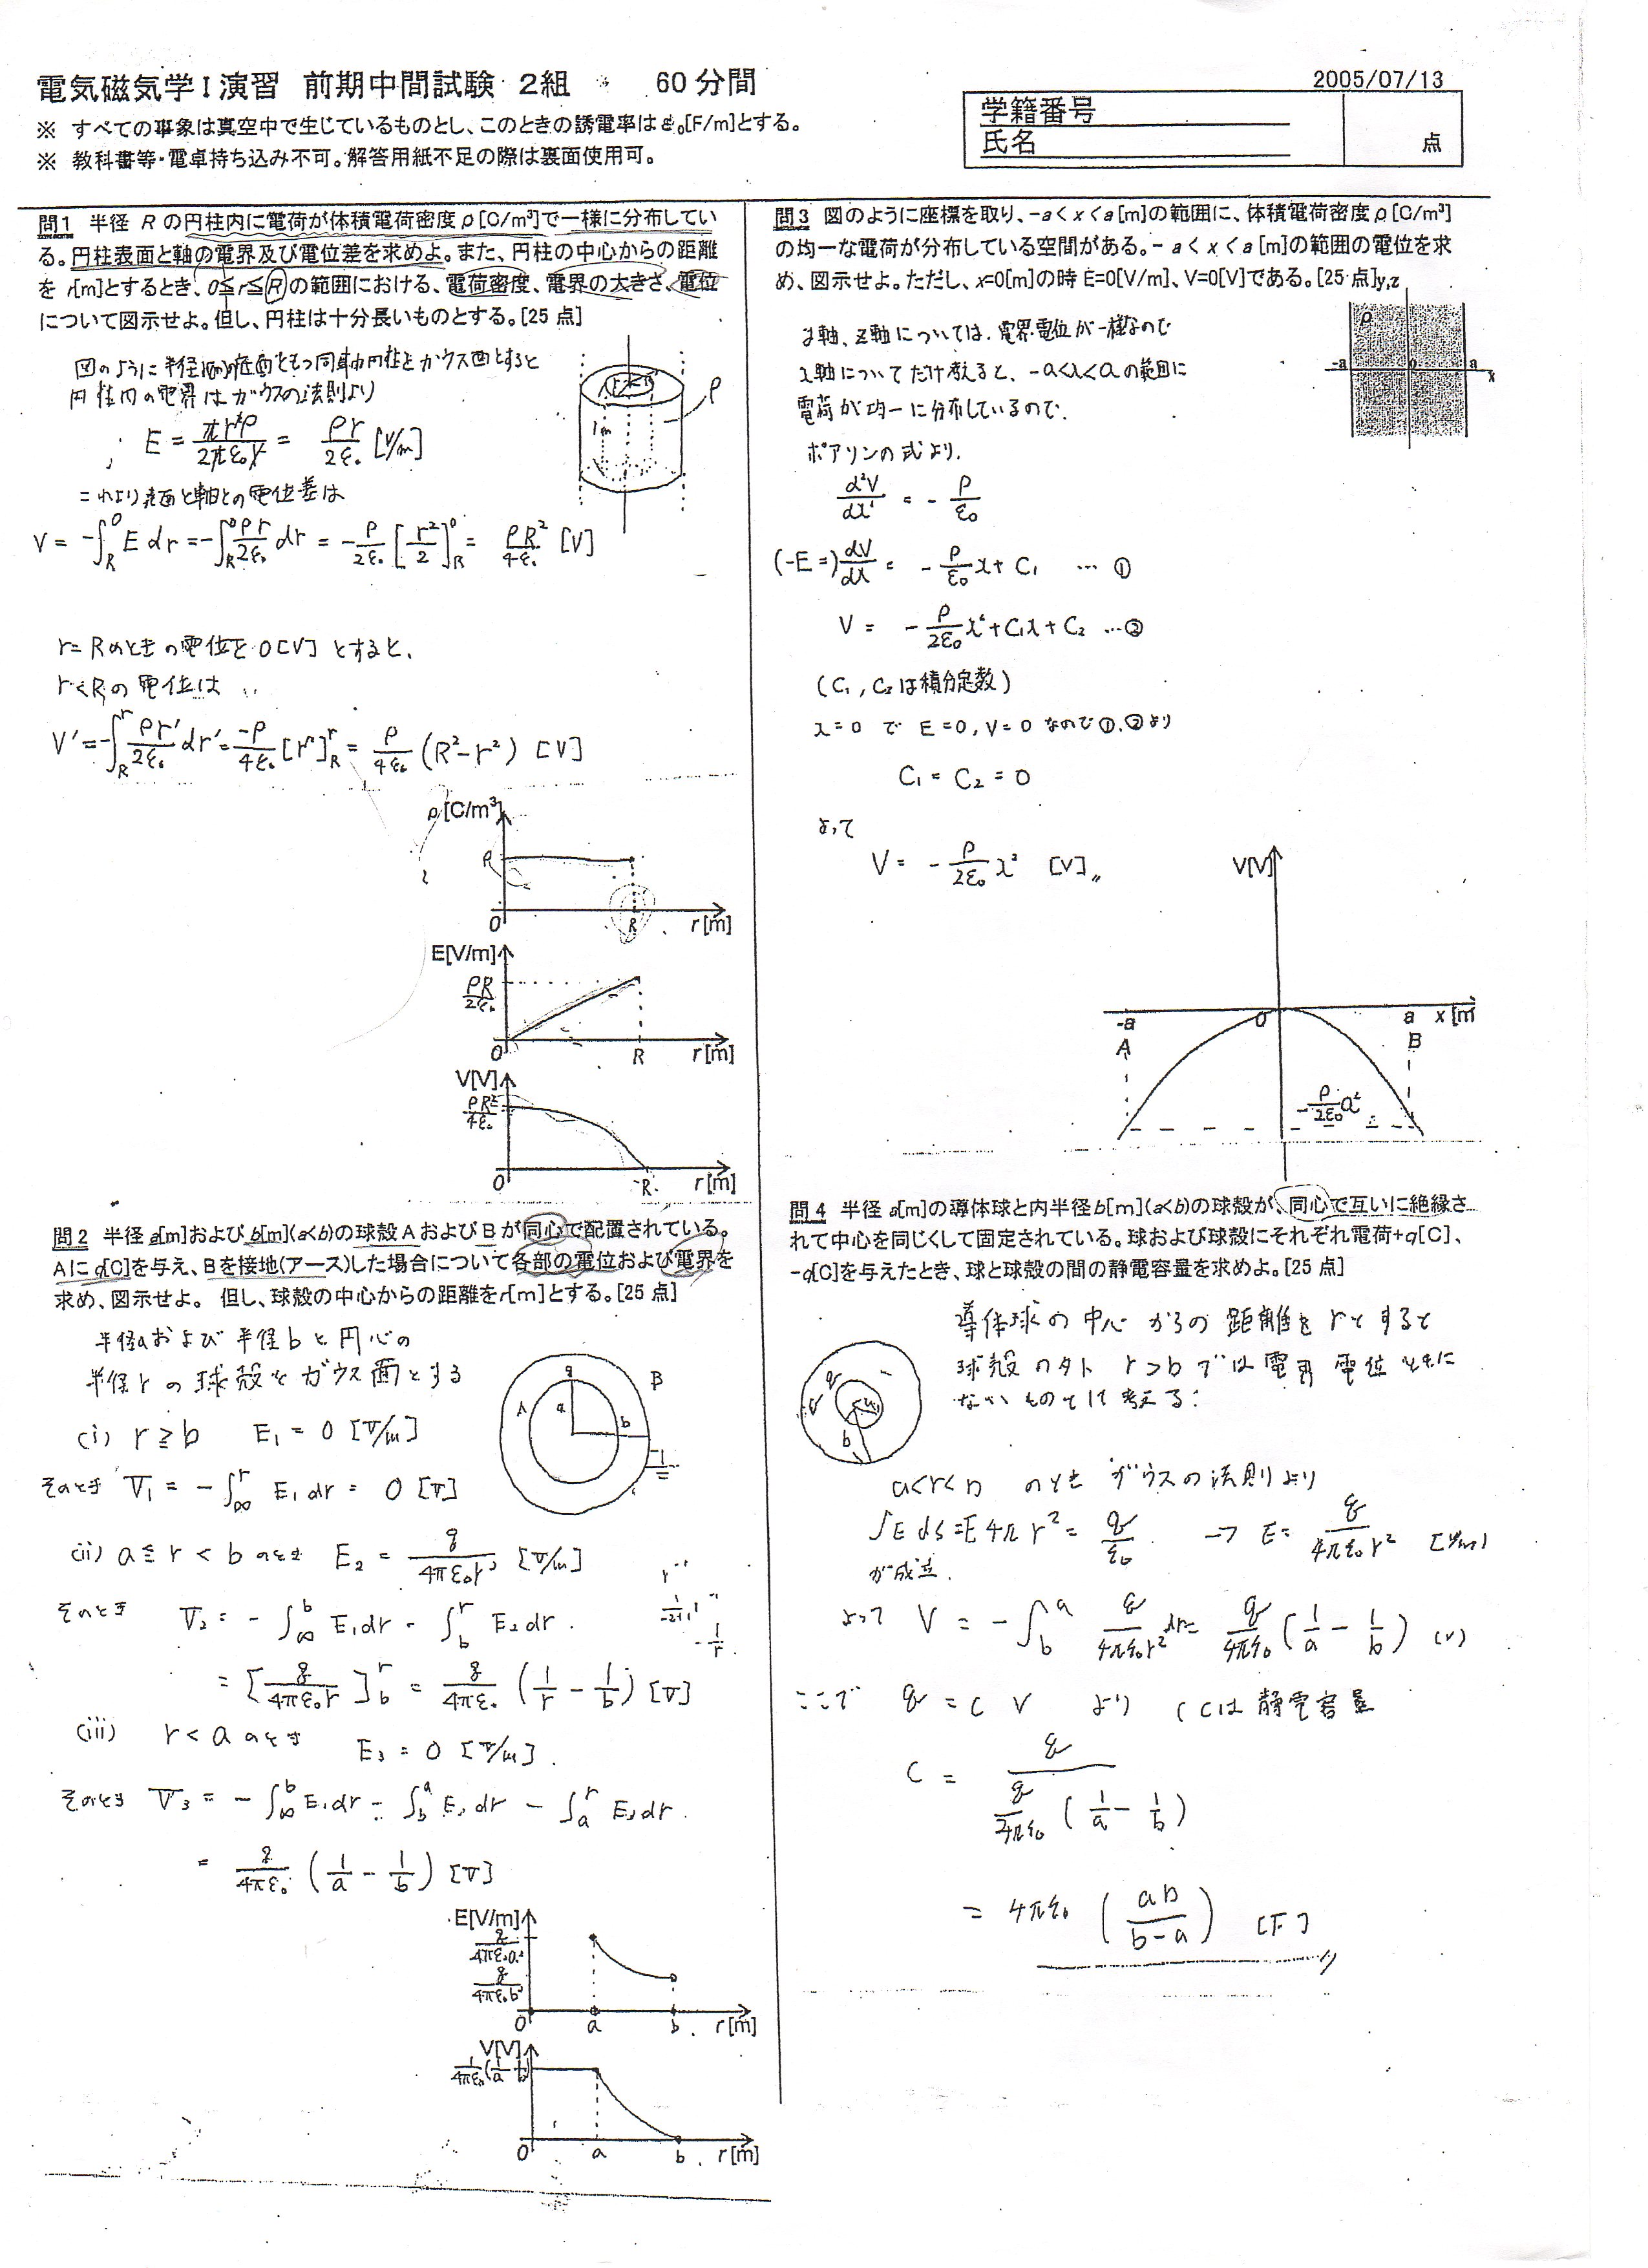 電気磁気学Ⅰ演習 前期中間試験 2組 60分間
2005/07/13
※ すべての事象は真空中で生じているものとし、このときの誘電率はε₀[F/m]とする。
※ 教科書等・電卓持ち込み不可。解答用紙不足の際は裏面使用可。
学籍番号
氏名
点
問1 半径 R の円柱内に電荷が体積電荷密度ρ[C/m³]で一様に分布してい
る。円柱表面と軸の電界及び電位差を求めよ。また、円柱の中心からの距離
を r[m]とするとき、0≦r≦Rの範囲における、電荷密度、電界の大きさ、電位
について図示せよ。但し、円柱は十分長いものとする。[25点]
図のように半径r[m]の底面をもつ同軸円柱をガウス面とすると
円柱内の電界はガウスの法則より
E = πr²ρ / 2πε₀r = ρr / 2ε₀ [V/m]
これより表面と軸との電位差は
V = -∫_R^0 E dr = -∫_R^0 ρr/2ε₀ dr = -ρ/2ε₀ [r²/2]_R^0 = ρR²/4ε₀ [V]
ρ
1m
r=Rのときの電位を0[V]とすると、
r<Rの電位は
V' = -∫_R^r ρr'/2ε₀ dr' = -ρ/4ε₀ [r²]_R^r = ρ/4ε₀ (R²-r²) [V]
ρ[C/m³]
ρ
0 R r[m]
E[V/m]
ρR/2ε₀
0 R r[m]
V[V]
ρR²/4ε₀
0 R r[m]
問2 半径 a[m]および b[m](a<b)の球殻AおよびBが同心で配置されている。
Aに q[C]を与え、Bを接地(アース)した場合について各部の電位および電界を
求め、図示せよ。 但し、球殻の中心からの距離をr[m]とする。[25点]
半径aおよび半径bと円心の
半径rの球殻をガウス面とする
q
A a b B
(i) r≧b E₁ = 0 [V/m]
そのとき V₁ = -∫_∞^r E₁dr = 0 [V]
(ii) a≦r<bのとき E₂ = q / 4πε₀r² [V/m]
そのとき V₂ = -∫_∞^b E₁dr - ∫_b^r E₂dr.
= [q/4πε₀r]_b^r = q/4πε₀ (1/r - 1/b) [V]
(iii) r<aのとき E₃ = 0 [V/m].
そのとき V₃ = -∫_∞^b E₁dr - ∫_b^a E₂dr - ∫_a^r E₃dr.
= q/4πε₀ (1/a - 1/b) [V]
E[V/m]
q/4πε₀a²
q/4πε₀b²
0 a b r[m]
V[V]
1/4πε₀(1/a - 1/b)
0 a b r[m]
問3 図のように座標を取り、-a<x<a[m]の範囲に、体積電荷密度ρ[C/m³]
の均一な電荷が分布している空間がある。-a<x<a[m]の範囲の電位を求
め、図示せよ。ただし、x=0[m]の時E=0[V/m]、V=0[V]である。[25点]
y,z
ρ
-a 0 a x
y軸、z軸については、電界電位が一様なので
x軸についてだけ考えると、-a<x<aの範囲に
電荷が均一に分布しているので、
ポアソンの式より、
d²V/dx² = -ρ/ε₀
(-E=)dV/dx = -ρ/ε₀ x + C₁ … ①
V = -ρ/2ε₀ x² + C₁x + C₂ …②
(C₁, C₂は積分定数)
x=0 で E=0, V=0 なので①,②より
C₁ = C₂ = 0
よって
V = -ρ/2ε₀ x² [V]
V[V]
-a 0 a x[m
A B
-ρ/2ε₀ a²
問4 半径 a[m]の導体球と内半径b[m](a<b)の球殻が、同心で互いに絶縁さ
れて中心を同じくして固定されている。球および球殻にそれぞれ電荷+q[C]、
-q[C]を与えたとき、球と球殻の間の静電容量を求めよ。[25点]
導体球の中心からの距離をrとすると
球殻の外 r>bでは電界 電位ともに
ないものとして考える.
-q q a
b
a<r<b のとき ガウスの法則より
∫E ds = E4πr² = q/ε₀ → E = q/4πε₀r² [V/m]
が成立.
よって V = -∫_b^a q/4πε₀r² dr = q/4πε₀ (1/a - 1/b) [V]
ここで q = C V より (Cは静電容量
C = q / q/4πε₀ (1/a - 1/b)
= 4πε₀ (ab/b-a) [F]